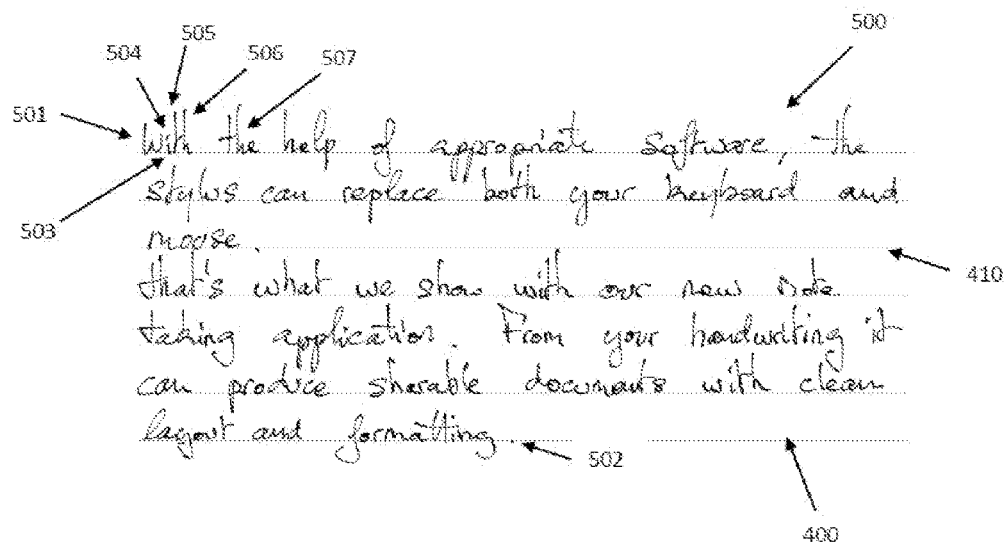 505
504
506
507
500
501
With the help of appropriate Software, the
stylus can replace both your keyboard and
503
mouse.
410
that's what we show with our new note
taking application. From your handwriting it
can produce sharable documents with clean
layout and formatting.
502
400